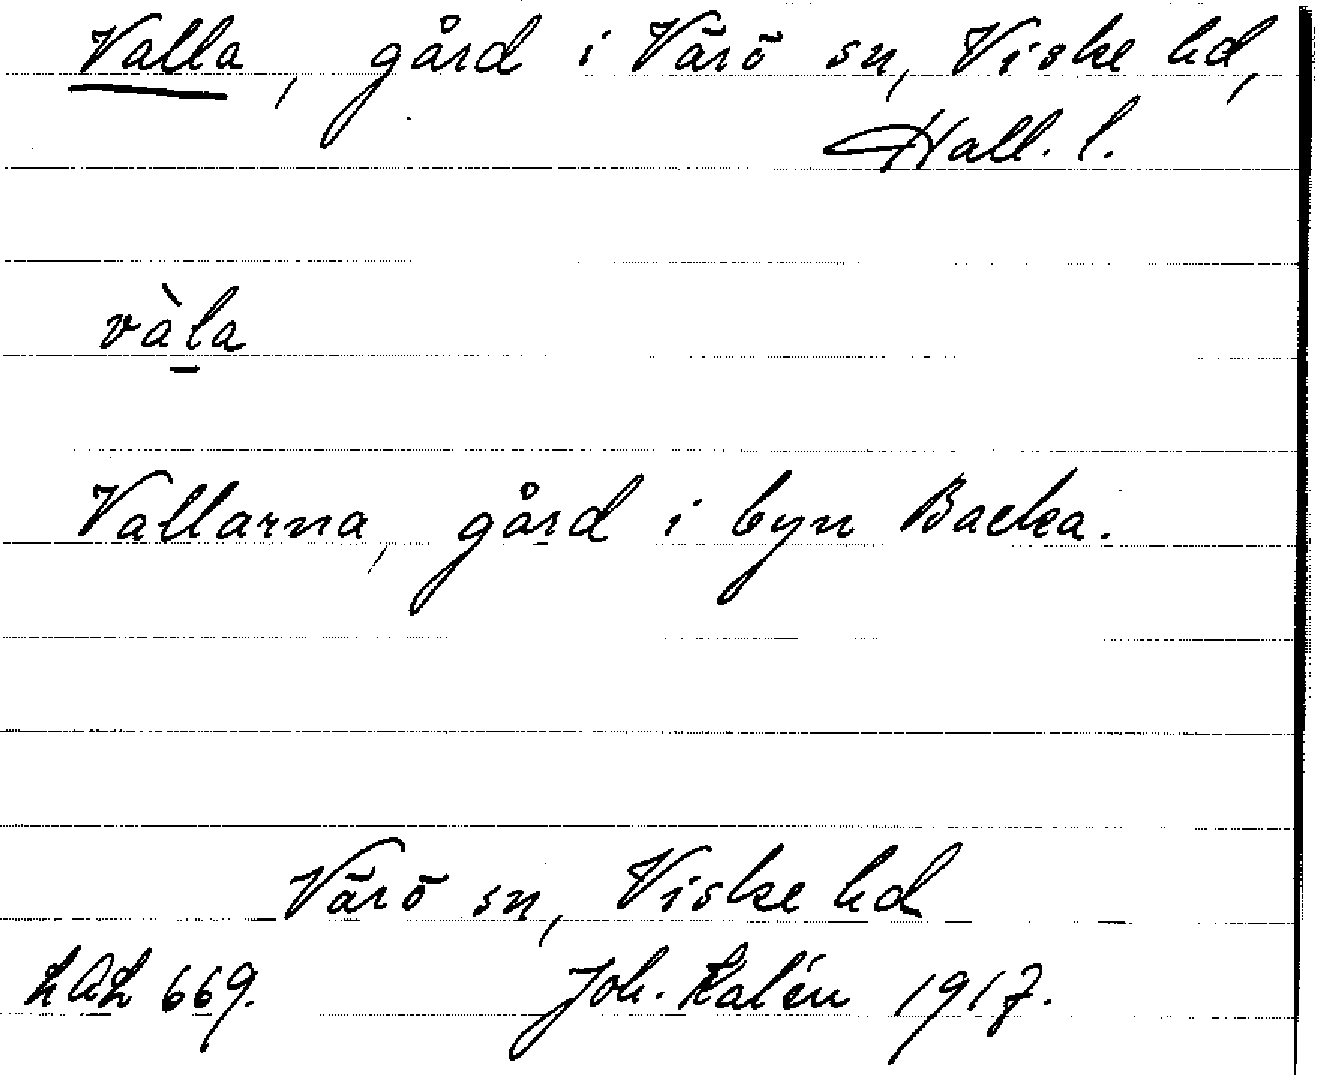 Valla, gård i Värö sn, Viske hd,
Hall. l.
vàl̠a
Vallarna, gård i byn Backa.
Värö sn, Viske hd
LAL 669. Joh. Kalén 1917.